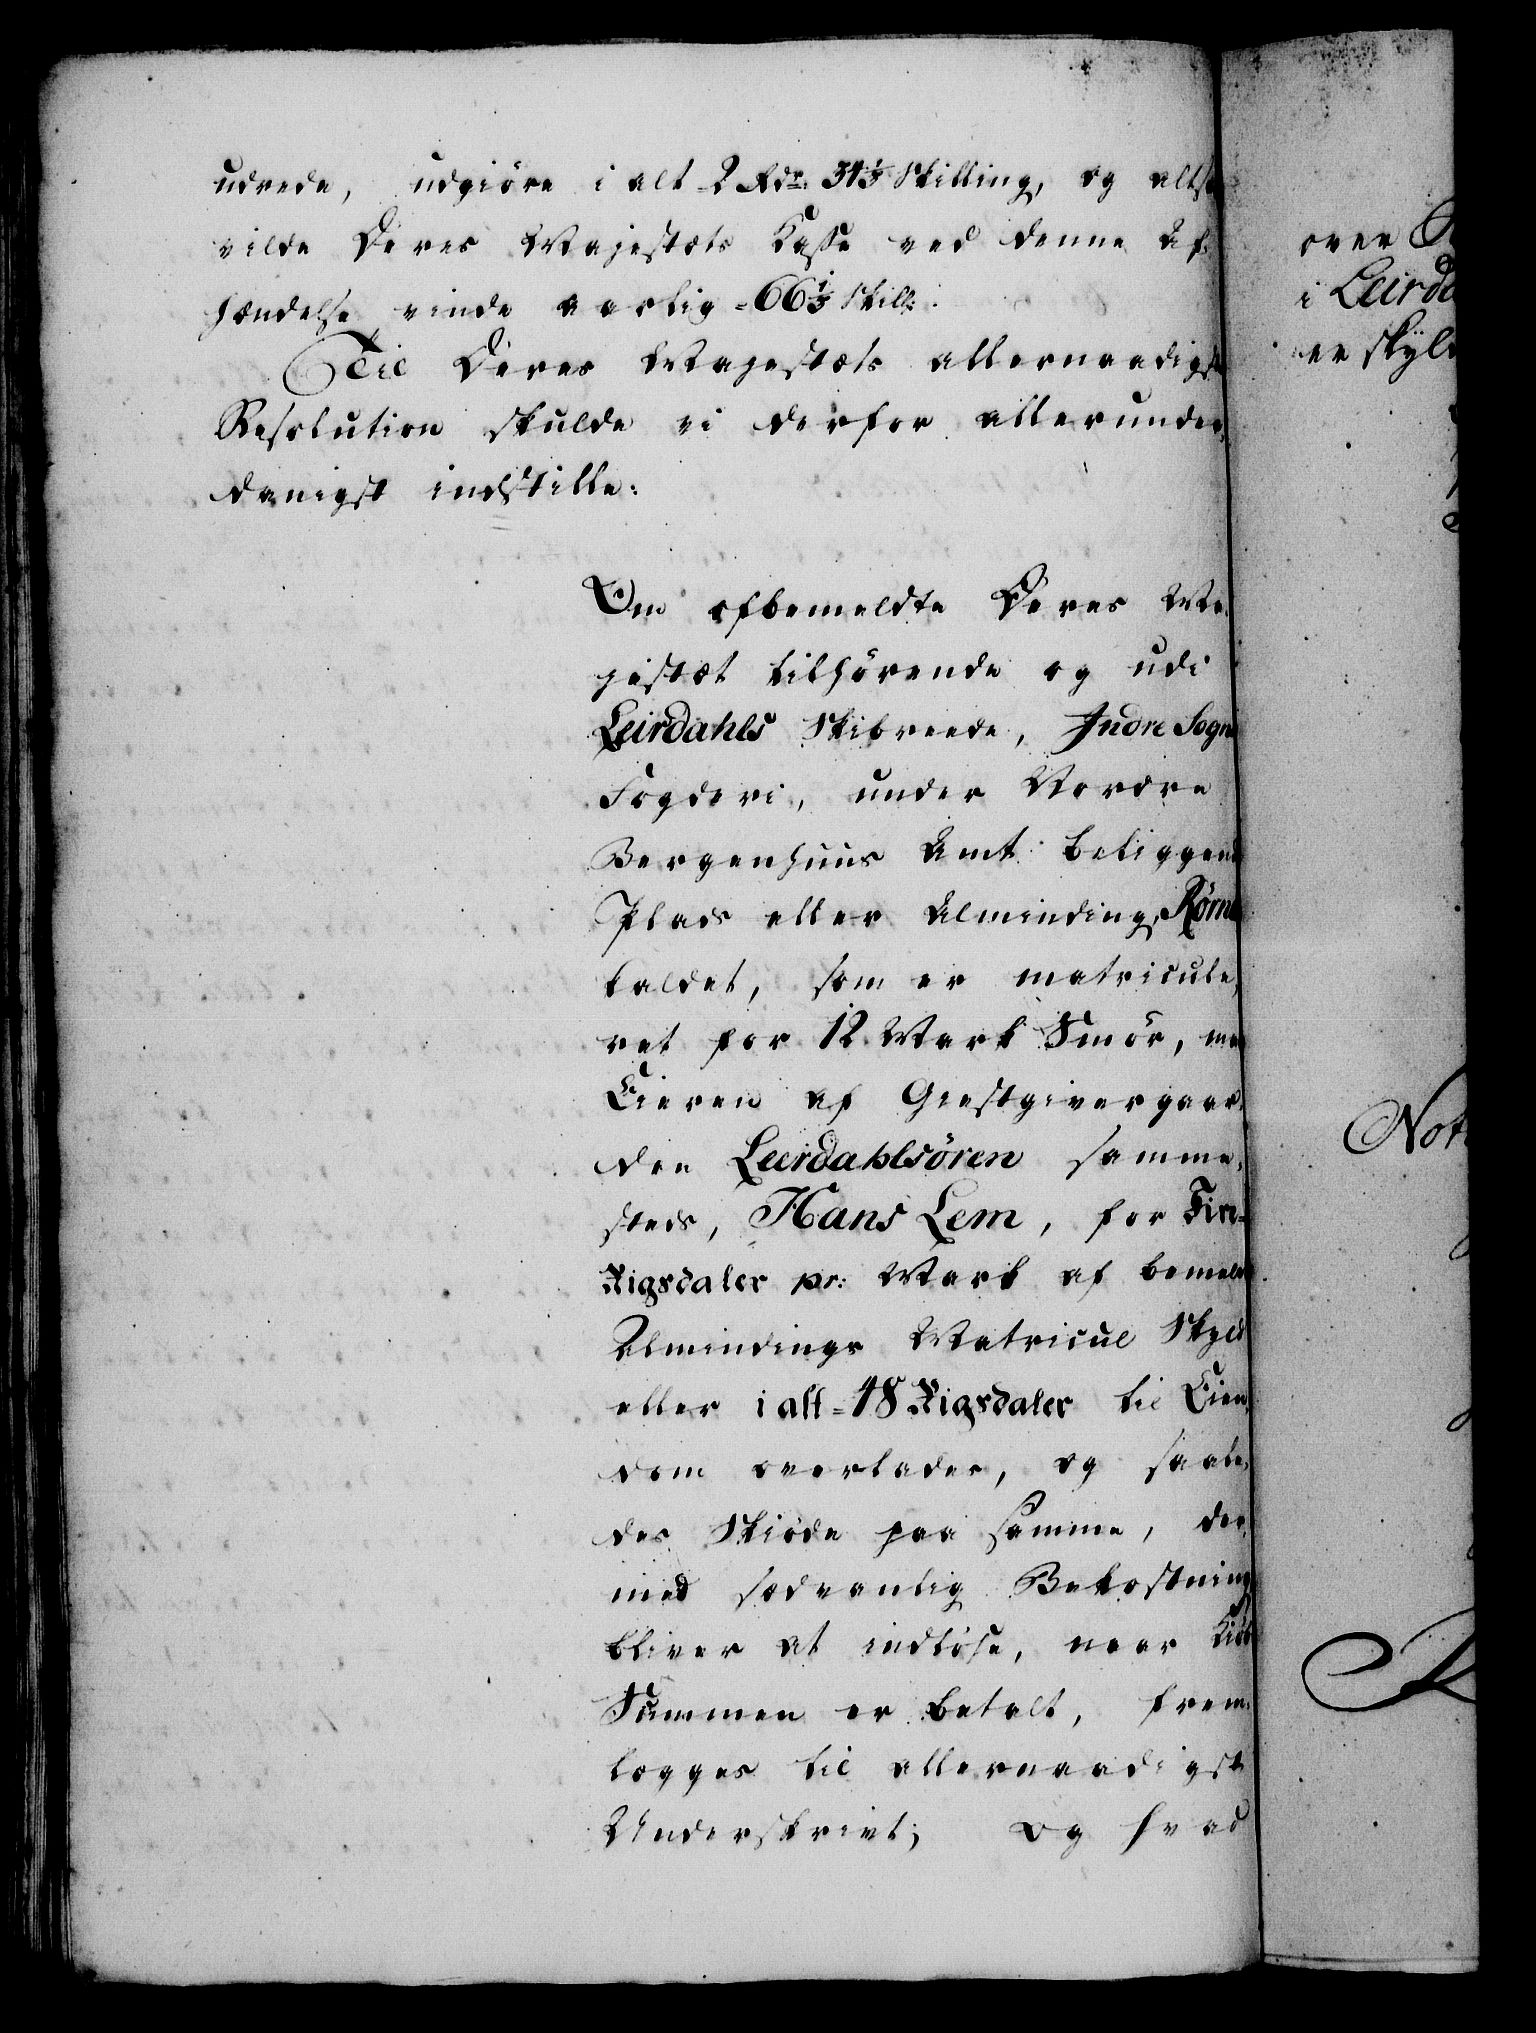 udrede, udgiøre i alt 2 Rdr. 31⅓ Skilling, og altsaa
vilde Deres Majestæts Casse ved denne Af-
hændelse vinde aarlig = 66⅓ Skill:
Til Deres Majestæts allernaadigste
Resolution skulde vi derfor allerunder-
danigst indstille:
Om ofbemeldte Deres Ma-
jestæt tilhørende og udi
Leirdahls Skibreede, Indre Sogns
Fogderi, under Nordre
Bergenhuus Amt beliggende
Plads eller Alminding, Rørn
kaldet, som er matricule-
ret for 12 Mark Smør, maa
Eieren af Giestgivergaar-
den Leerdahlsøren samme-
steds, Hans Lem, for Fire
Rigsdaler pr: Mark af bemeldte
Almindings Matricul Skyld
eller i alt = 48 Rigsdaler til Eien-
dom overlades, og saale-
des Skiøde paa samme, der
med sædvanlig Bekostning
bliver at indløse, naar Kiøb
Summen er betalt, frem-
lægges til allernaadigst
Underskrivt; og hvad
over
i Leirda
er skyld
Not